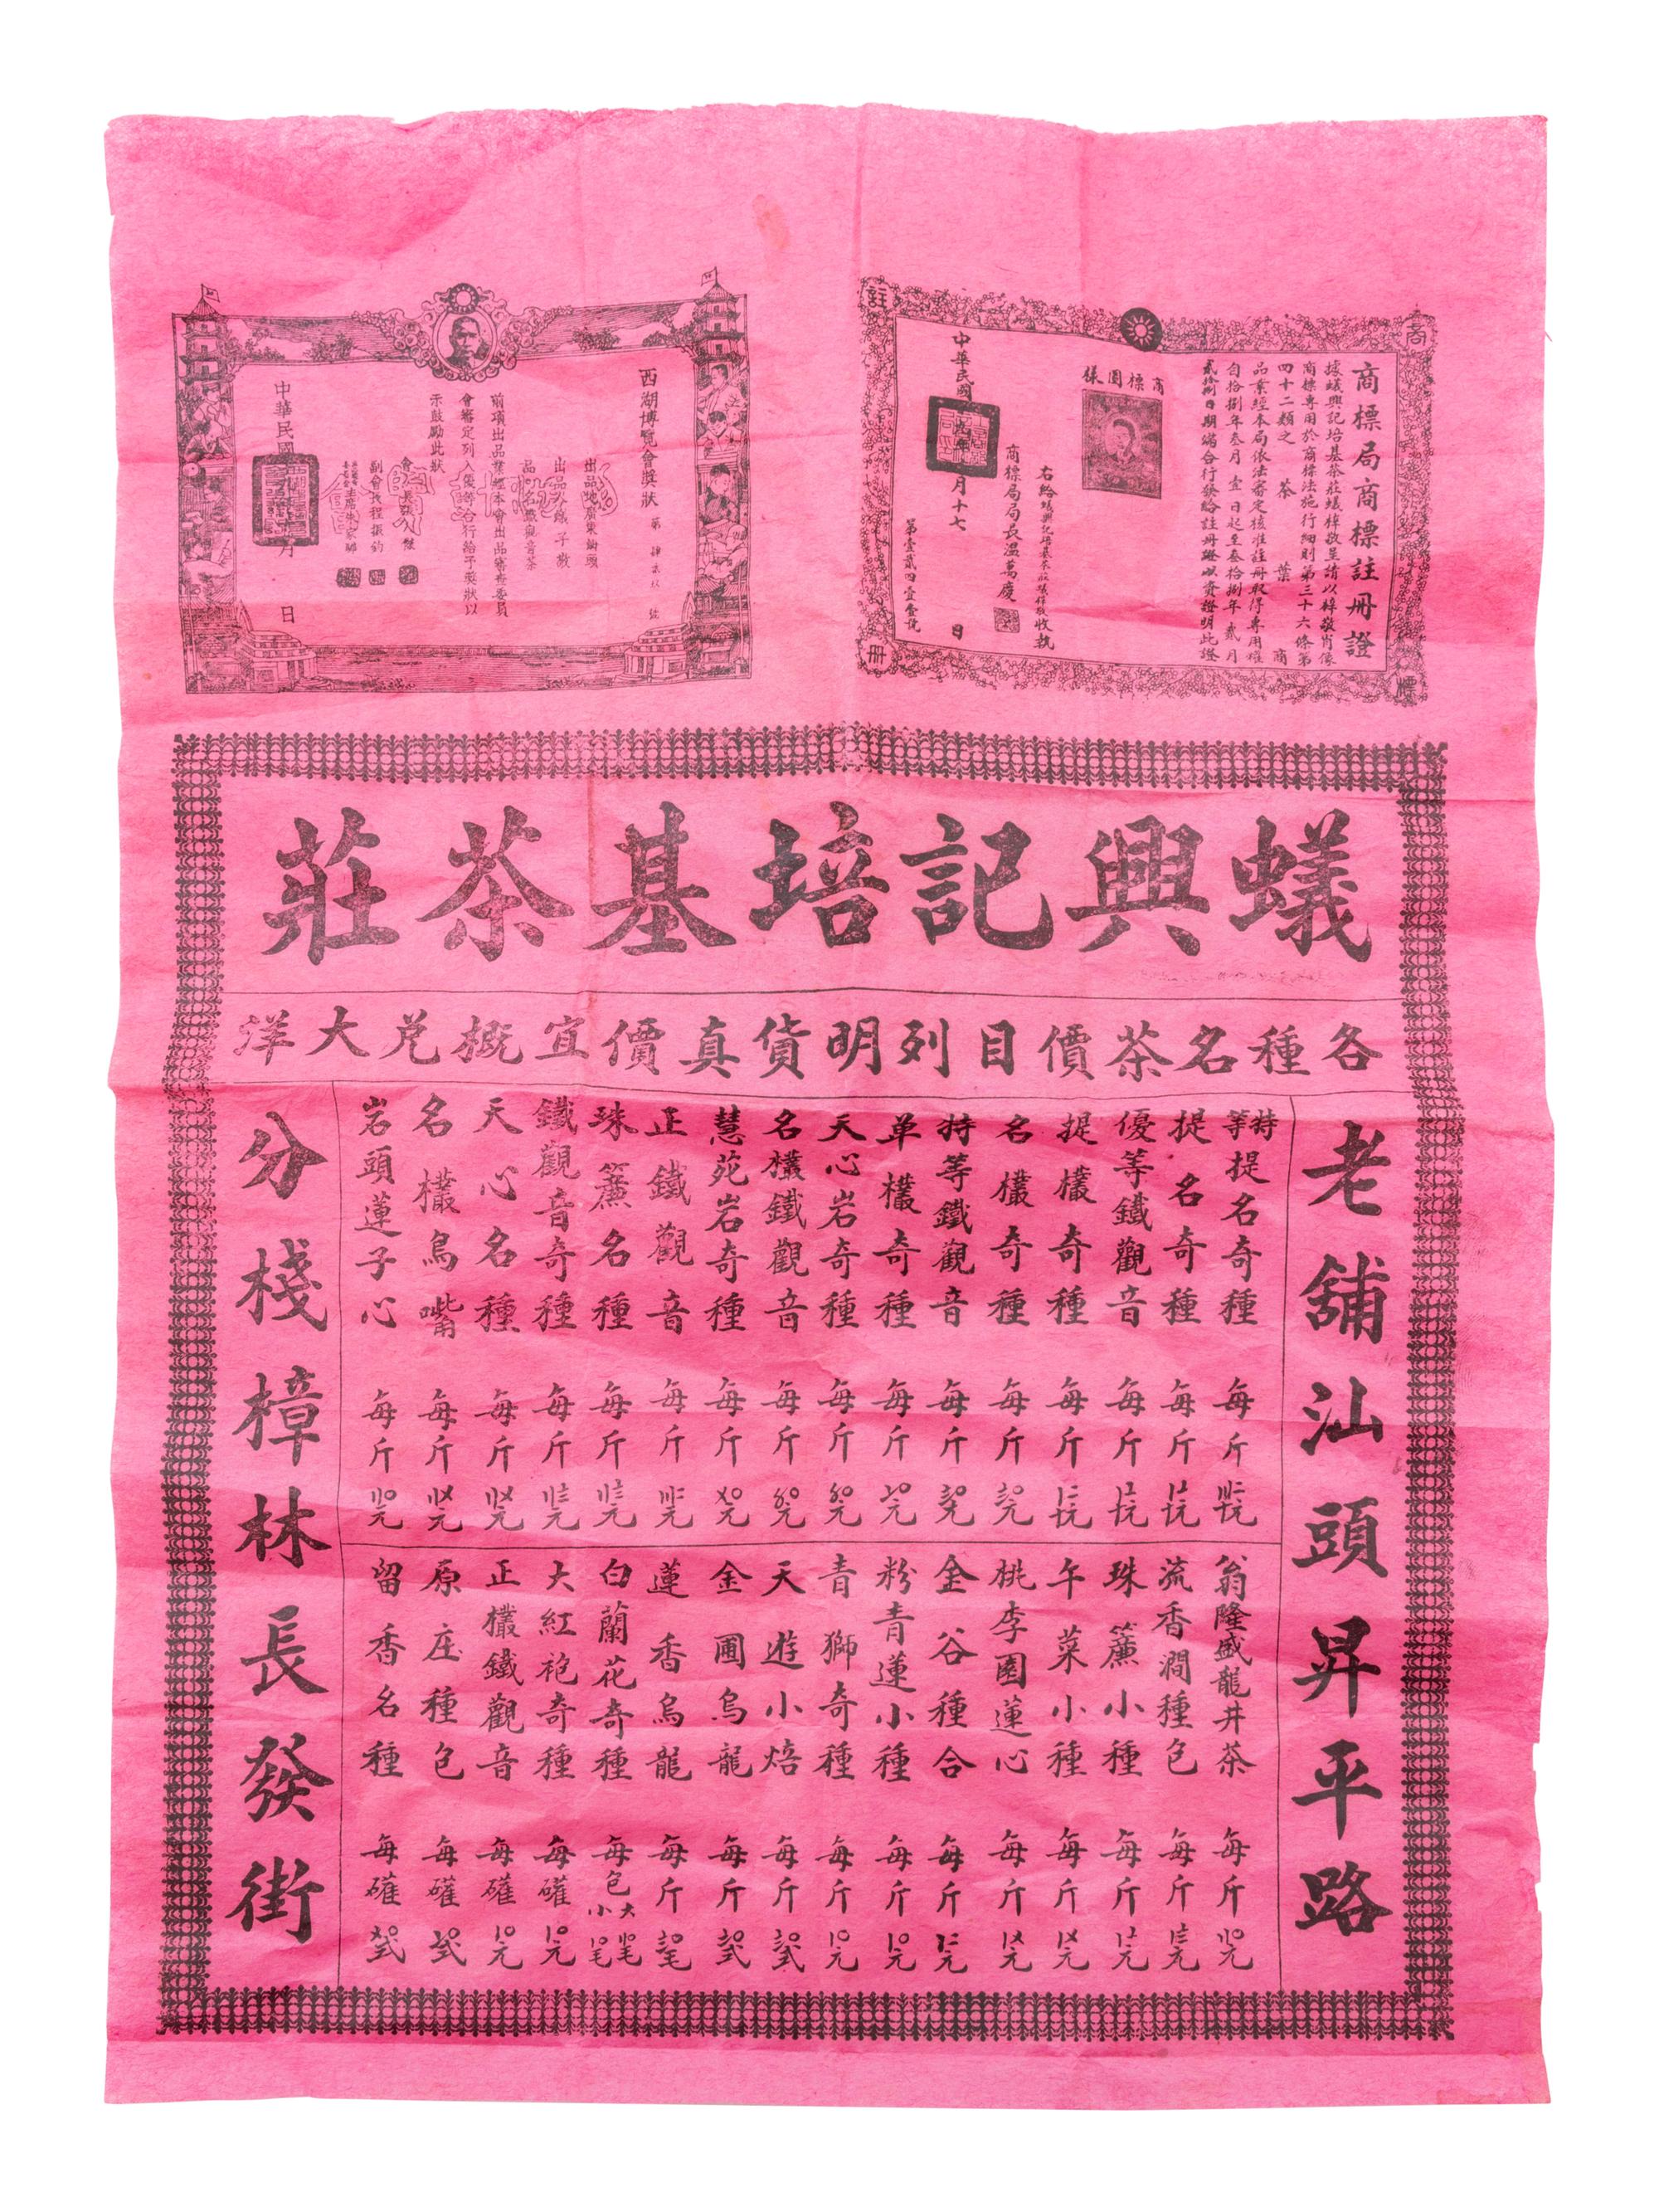 商標局商標註冊證
據蟻興記培基茶莊蟻棹敬呈請以棹敬肖像
商標專用於商標法施行細則第三十六條第
四十二類之茶葉商
品業經本局依法審定核准註冊取得專用權
自拾捌年叁月壹日起至叁拾捌年貳月
貳拾捌日期滿合行發給註冊證以資證明此證
商標圖樣
右給蟻興記培基茶莊蟻棹敬收執
商標局局長溫萬慶
中華民國
月十七日
第壹貳四壹壹號
註
商
冊
標
西湖博覽會獎狀
出品地廣東汕頭
前項出品業經本會出品審查委員
會審定列入優等合行給予獎狀以
示鼓勵此狀
副會長程振鈞
中華民國
月
日
蟻興記培基茶莊
各種名茶價目列明貨真價宜概兌大洋
老舖汕頭昇平路
特等提名奇種 每斤
提名奇種 每斤
優等鐵觀音 每斤
提欉奇種 每斤
名欉奇種 每斤
特等鐵觀音 每斤
单欉奇種 每斤
天心岩奇種 每斤
名欉鐵觀音 每斤
慧苑岩奇種 每斤
正鐵觀音 每斤
珠簾名種 每斤
鐵觀音奇種 每斤
天心名種 每斤
名欉烏嘴 每斤
岩頭蓮子心 每斤
翁隆盛龍井茶 每斤
流香澗種包 每斤
珠簾小種 每斤
午菜小種 每斤
桃李園蓮心 每斤
金谷種合 每斤
粉青蓮小種 每斤
青獅奇種 每斤
天遊小焙 每斤
金圃烏龍 每斤
蓮香烏龍 每斤
白蘭花奇種 每包大小
大紅袍奇種 每礶
正欉鐵觀音 每礶
原庄種包 每礶
留香名種 每礶
分棧樟林長發街